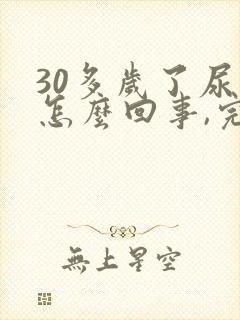 30多歲了尿
怎麼回事,完
無上星空